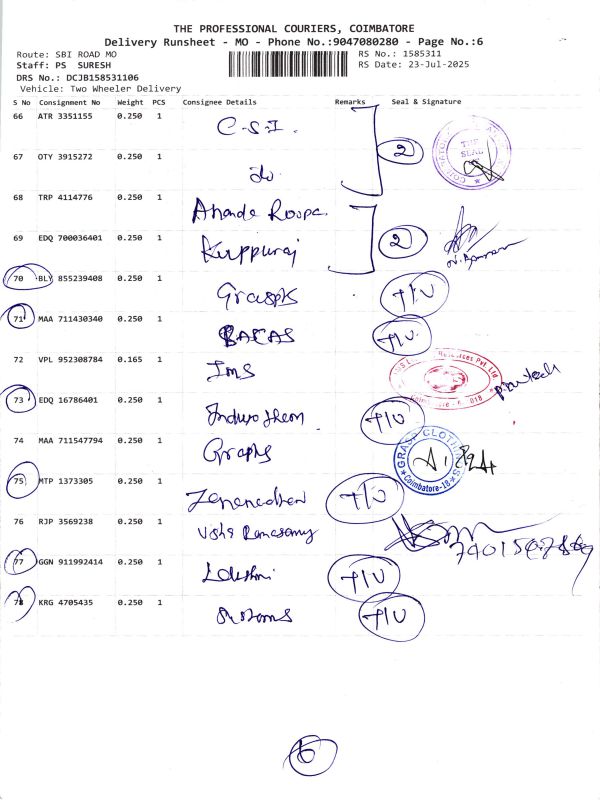 THE PROFESSIONAL COURIERS, COIMBATORE
Delivery Runsheet - MO - Phone No.:9047080280 - Page No.:6
Route: SBI ROAD MO
RS No.: 1585311
Staff: PS SURESH
RS Date: 23-Jul-2025
DRS No.: DCJB158531106
Vehicle: Two Wheeler Delivery
S No Consignment No Weight PCS Consignee Details Remarks Seal & Signature
66 ATR 3351155 0.250 1 C.S.I. 2
67 OTY 3915272 0.250 1 do
68 TRP 4114776 0.250 1 Ananda Roopa
69 EDQ 700036401 0.250 1 Kuppuraj 2
70 BLY 855239408 0.250 1 T/U
71 MAA 711430340 0.250 1 T/U
72 VPL 952308784 0.165 1 IMS
73 EDQ 16786401 0.250 1 T/U
74 MAA 711547794 0.250 1 GRASP CLOTHING Coimbatore-18
75 MTP 1373305 0.250 1 T/U
76 RJP 3569238 0.250 1 Ramasamy
77 GGN 911992414 0.250 1 Lakshmi T/U
78 KRG 4705435 0.250 1 T/U
6